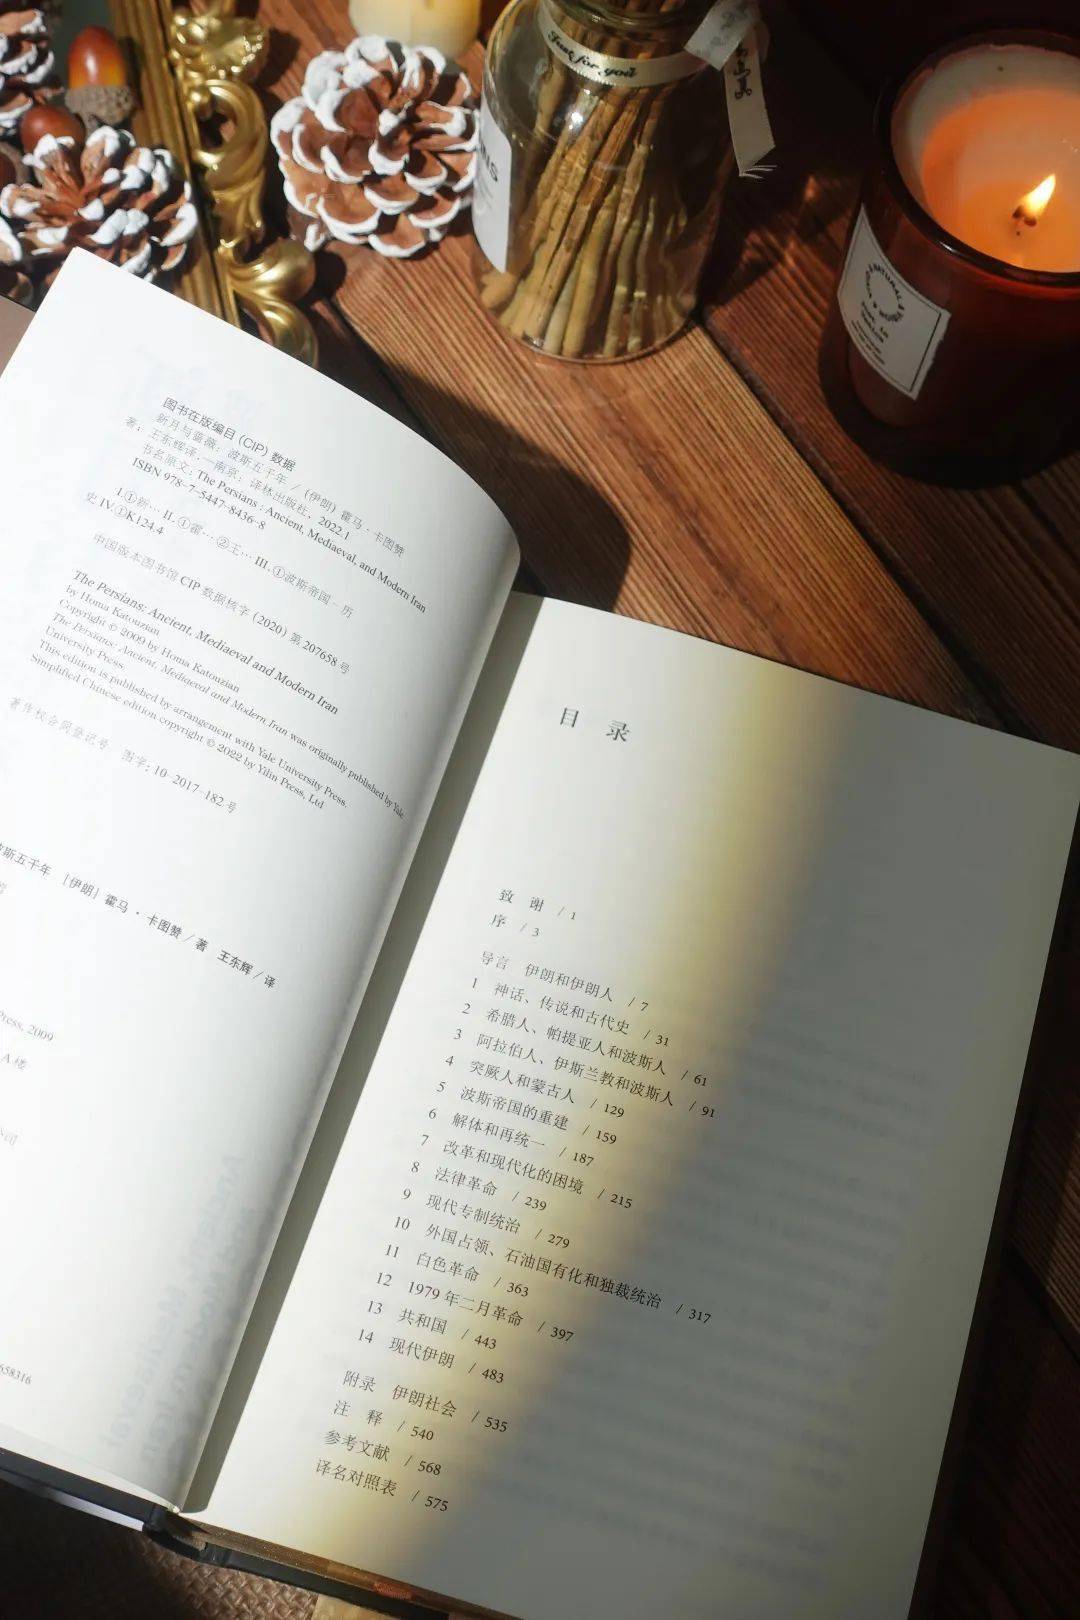 Just for you
NS
NATURAL
图书在版编目 (CIP) 数据
新月与蔷薇：波斯五千年 / (伊朗) 霍马·卡图赞
著；王东辉译. —南京：译林出版社，2022.1
书名原文：The Persians : Ancient, Mediaeval, and Modern Iran
ISBN 978-7-5447-8436-8
I.①新… II.①霍… ②王… III.①波斯帝国－历
史 IV.①K124.4
中国版本图书馆 CIP 数据核字 (2020) 第 207658 号
The Persians: Ancient, Mediaeval and Modern Iran
by Homa Katouzian
Copyright © 2009 by Homa Katouzian
The Persians: Ancient, Mediaeval and Modern Iran was originally published by Yale
University Press
This edition is published by arrangement with Yale University Press.
Simplified Chinese edition copyright © 2022 by Yilin Press, Ltd
著作权合同登记号 图字：10-2017-182 号
斯五千年 [伊朗] 霍马·卡图赞 / 著 王东辉 / 译
Press, 2009
A 楼
658316
目 录
致 谢 / 1
序 / 3
导言 伊朗和伊朗人 / 7
1 神话、传说和古代史 / 31
2 希腊人、帕提亚人和波斯人 / 61
3 阿拉伯人、伊斯兰教和波斯人 / 91
4 突厥人和蒙古人 / 129
5 波斯帝国的重建 / 159
6 解体和再统一 / 187
7 改革和现代化的困境 / 215
8 法律革命 / 239
9 现代专制统治 / 279
10 外国占领、石油国有化和独裁统治 / 317
11 白色革命 / 363
12 1979 年二月革命 / 397
13 共和国 / 443
14 现代伊朗 / 483
附录 伊朗社会 / 535
注 释 / 540
参考文献 / 568
译名对照表 / 575